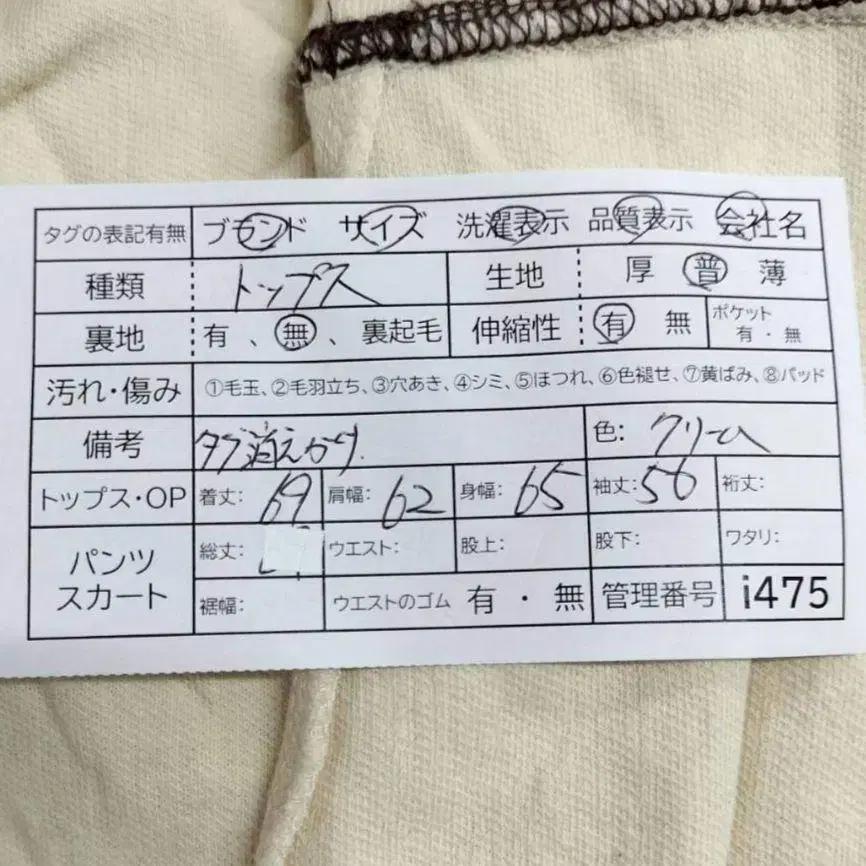 タグの表記有無 ブランド サイズ 洗濯表示 品質表示 会社名
種類 トップス 生地 厚 普 薄
裏地 有 、 無 、 裏起毛 伸縮性 有 無 ポケット 有 ・ 無
汚れ・傷み ①毛玉、②毛羽立ち、③穴あき、④シミ、⑤ほつれ、⑥色褪せ、⑦黄ばみ、⑧パッド
備考 タグ消えかけ 色: クリーム
トップス・OP 着丈: 69 肩幅: 62 身幅: 65 袖丈: 56 裄丈:
パンツ スカート 総丈: ウエスト: 股上: 股下: ワタリ:
裾幅: ウエストのゴム 有 ・ 無 管理番号 i475